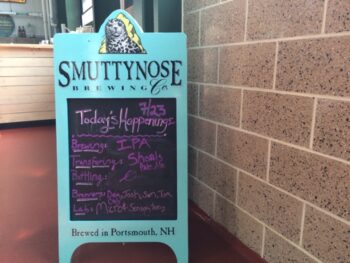 SMUTTYNOSE
BREWING Co.
7/23
Today's Happenings
Brewing: IPA
Transfering: Shoals
Pale Ale
Bottling:
Brewers: Dan, Josh, Sam, Jon
Lab:
Brewed in Portsmouth, NH